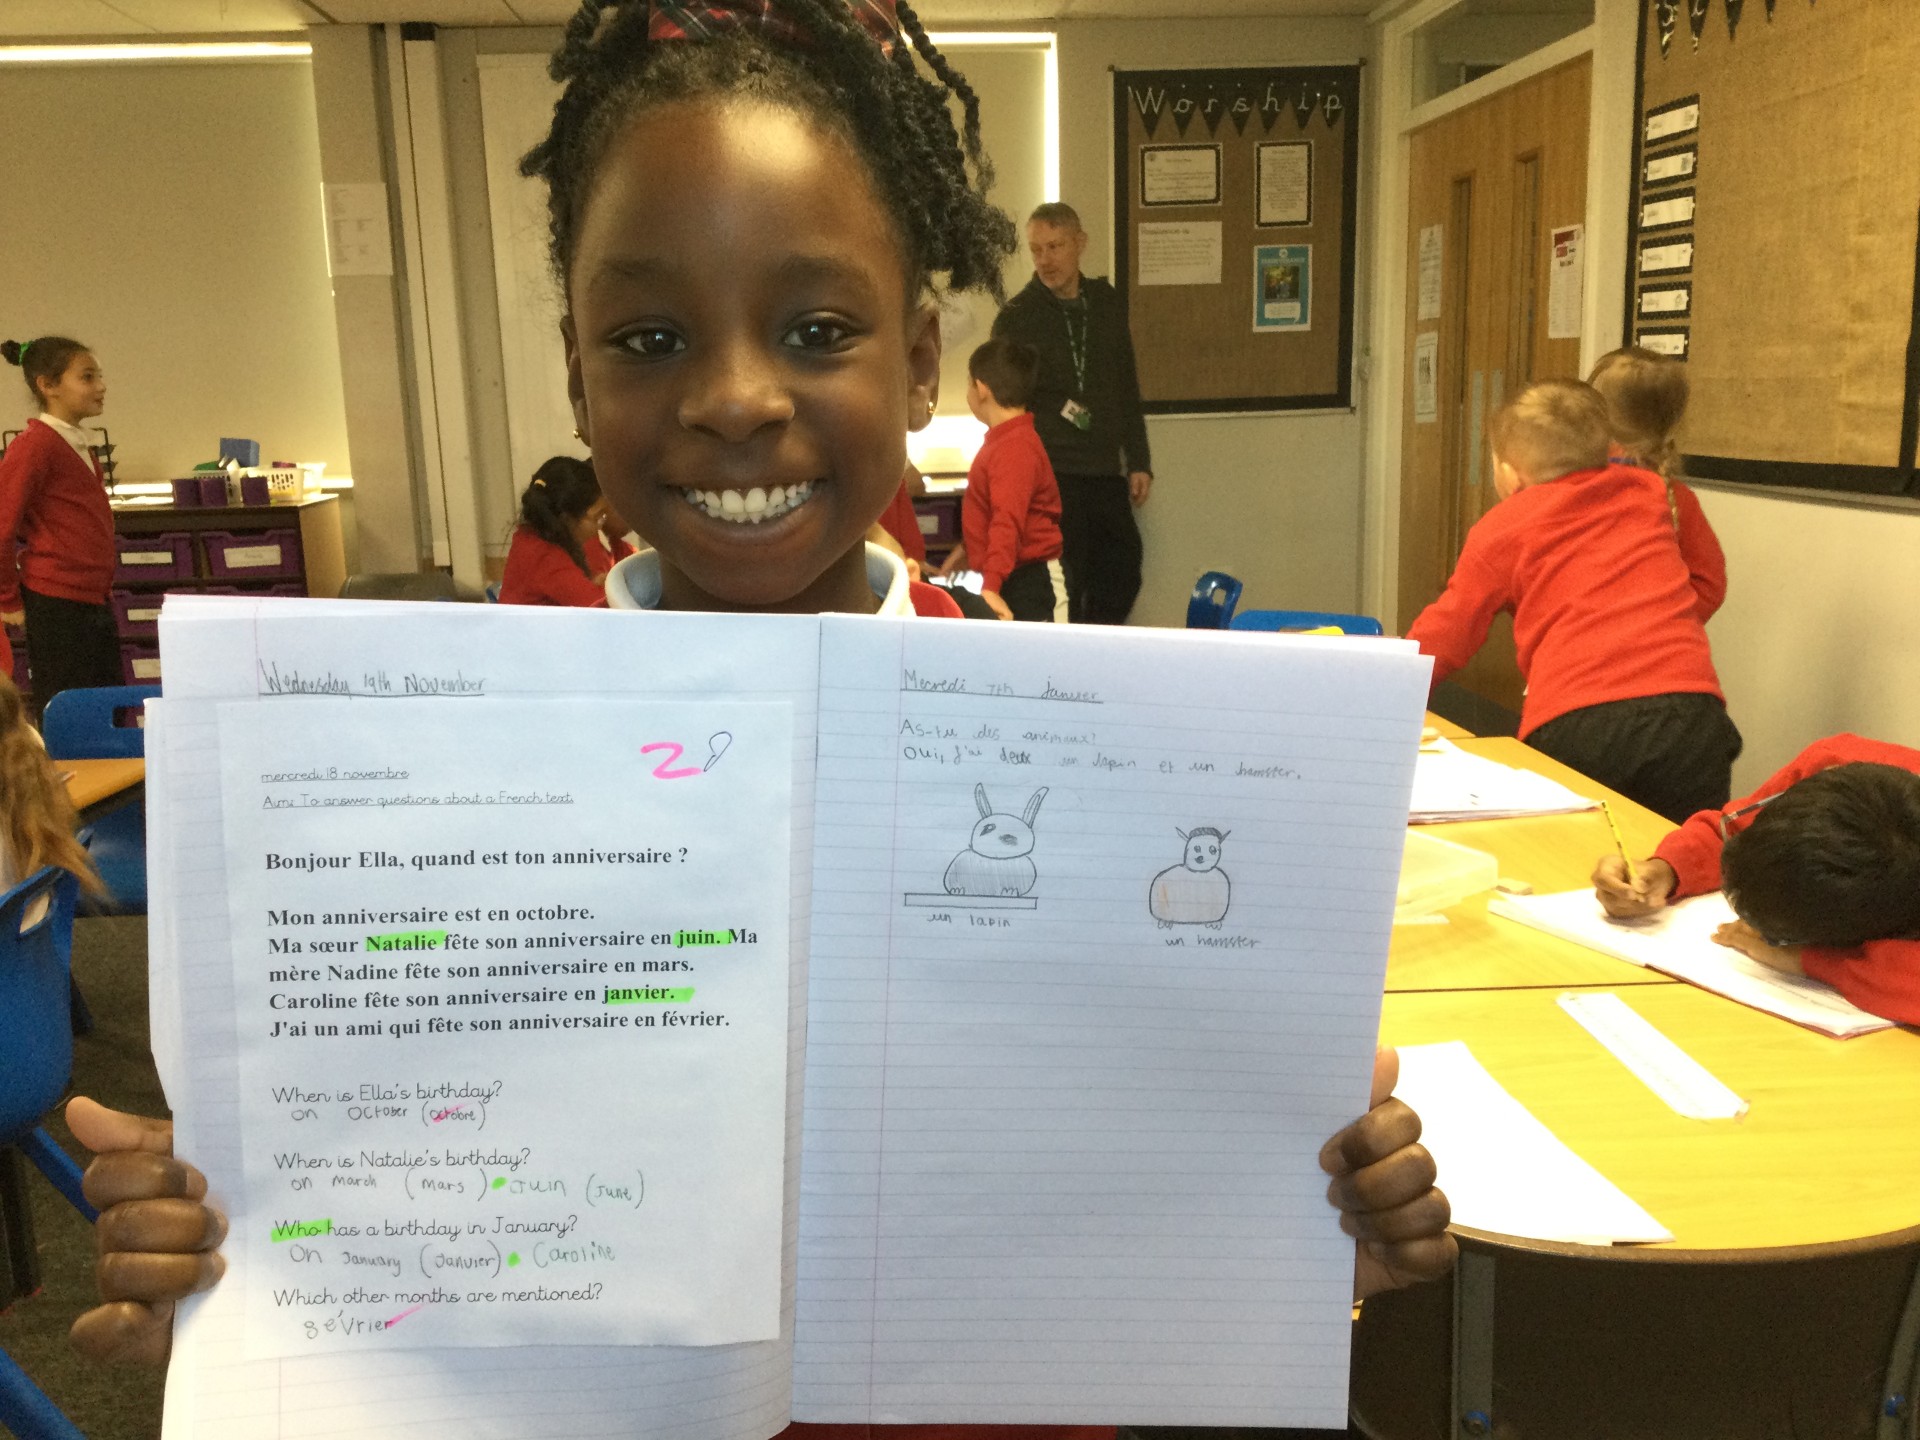 Worship
Wednesday 19th November
mercredi 18 novembre
Aim: To answer questions about a French text.
2
Bonjour Ella, quand est ton anniversaire ?
Mon anniversaire est en octobre.
Ma sœur Natalie fête son anniversaire en juin. Ma
mère Nadine fête son anniversaire en mars.
Caroline fête son anniversaire en janvier.
J'ai un ami qui fête son anniversaire en février.
When is Ella's birthday?
on October (octobre)
When is Natalie's birthday?
on march (mars) Juin (June)
Who has a birthday in January?
On January (Janvier) Caroline
Which other months are mentioned?
février
Mecredi 7th janvier
As-tu des animaux?
Oui, j'ai deux un lapin et un hamster.
un lapin
un hamster